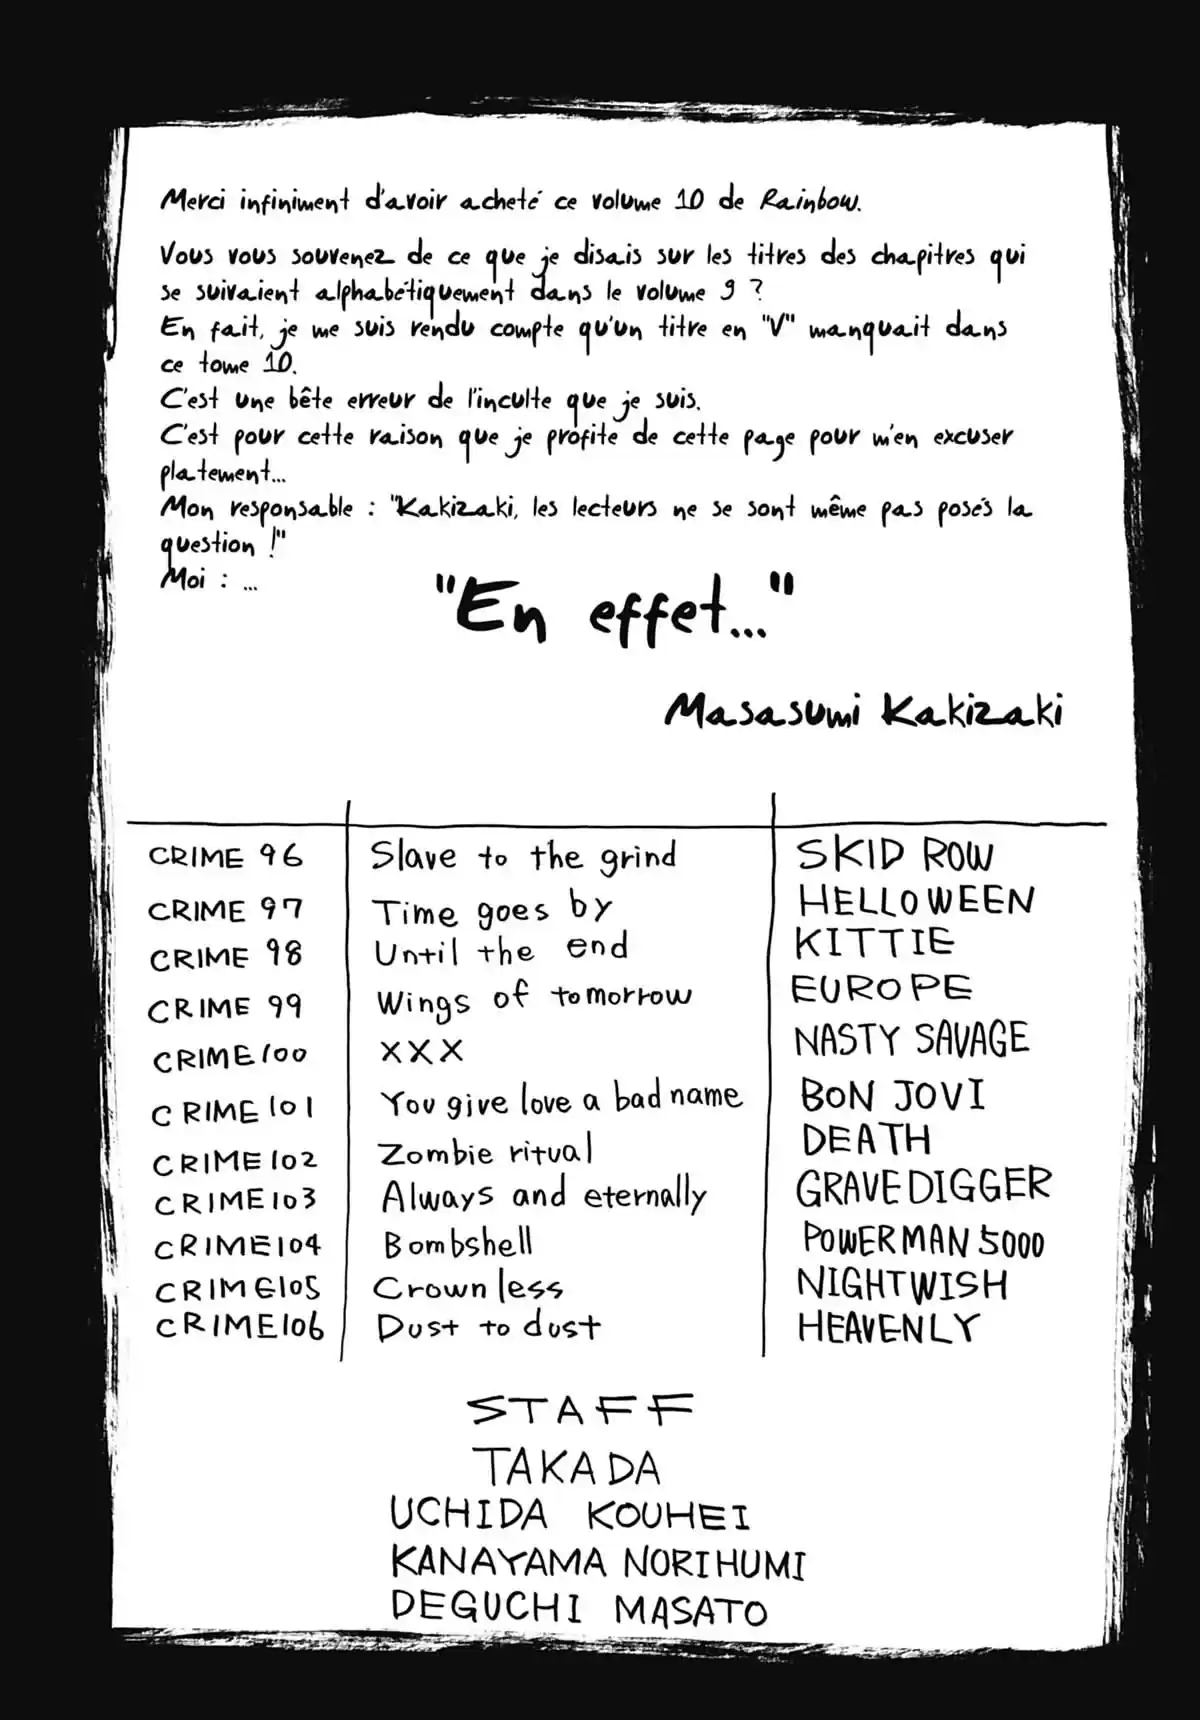 Merci infiniment d'avoir acheté ce volume 10 de Rainbow.
Vous vous souvenez de ce que je disais sur les titres des chapitres qui
se suivaient alphabétiquement dans le volume 9 ?
En fait, je me suis rendu compte qu'un titre en "V" manquait dans
ce tome 10.
C'est une bête erreur de l'inculte que je suis.
C'est pour cette raison que je profite de cette page pour m'en excuser
platement...
Mon responsable : "Kakizaki, les lecteurs ne se sont même pas posés la
question !"
Moi : ...
"En effet..."
Masasumi Kakizaki
CRIME 96 Slave to the grind SKID ROW
CRIME 97 Time goes by HELLOWEEN
CRIME 98 Until the end KITTIE
CRIME 99 Wings of tomorrow EUROPE
CRIME 100 XXX NASTY SAVAGE
CRIME 101 You give love a bad name BON JOVI
CRIME 102 Zombie ritual DEATH
CRIME 103 Always and eternally GRAVEDIGGER
CRIME 104 Bombshell POWERMAN 5000
CRIME 105 Crownless NIGHTWISH
CRIME 106 Dust to dust HEAVENLY
STAFF
TAKADA
UCHIDA KOUHEI
KANAYAMA NORIHUMI
DEGUCHI MASATO